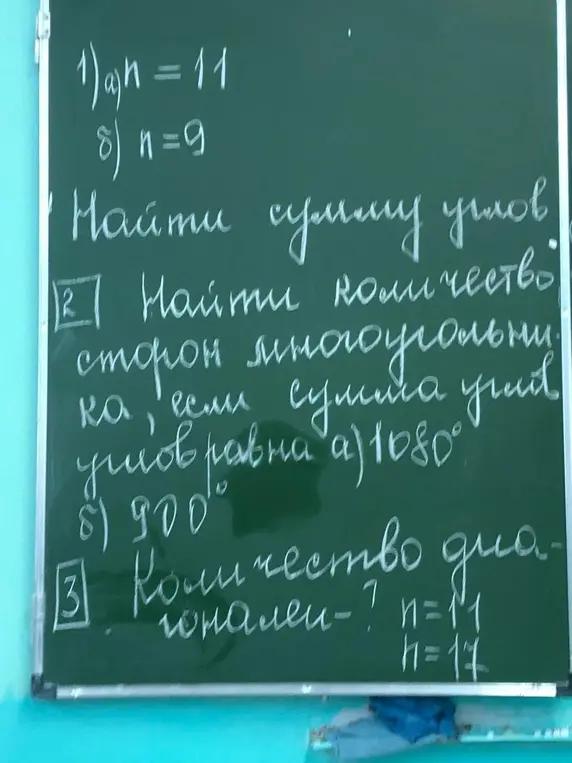 1) а) n = 11
б) n = 9
Найти сумму углов
2 Найти количество
сторон многоугольни-
ка, если сумма углов
углов равна а) 1080°
б) 900°
3 Количество диа-
гоналей-? n=11
n=17